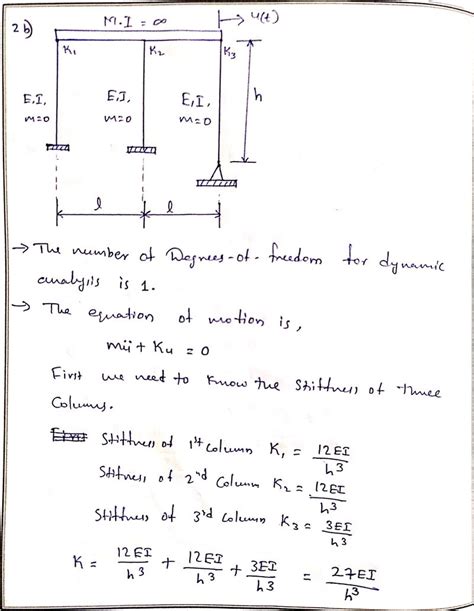 2b) M.I = ∞ → u(t)
K₁ K₂ K₃
E,I, E,I, E,I, h
m=0 m=0 m=0
l l
→ The number of Degrees-of-freedom for dynamic
analysis is 1.
→ The equation of motion is,
mü + Ku = 0
First we need to know the stiffness of three
Columns.
Stiffness of 1st Column K₁ = 12EI/h³
Stiffness of 2nd Column K₂ = 12EI/h³
Stiffness of 3rd Column K₃ = 3EI/h³
K = 12EI/h³ + 12EI/h³ + 3EI/h³ = 27EI/h³